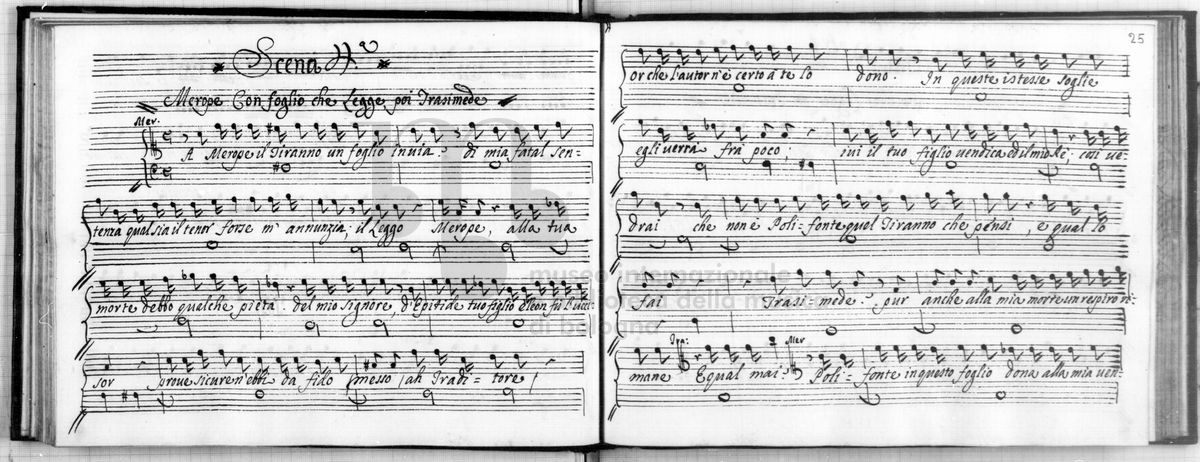 Scena II.ª
Merope Con foglio che Legge poi Trasimede
Mer.
A Merope il Tiranno un foglio invia. di mia fatal sen-
tenza qual sia il tenor forse m'annunzia; il Leggo Merope, alla tua
morte debbo qualche pietà. del mio signore, d'Epitide tuo figlio
sor prove sicure n'ebbi da fido messo (ah Tradi-tore)
25
or che l'autor n'è certo a te lo dono. In queste istesse soglie
egli verrà frà poco; ivi il tuo figlio vendica ed il mio Rè; così ve-
drai che non è Polifonte quel Tiranno che pensi, e qual lo
fai Trasimede. pur anche alla mia morte un respiro ri-
Tra: Mer
mane Equal mai? Poli-fonte in questo foglio dona alla mia ven-
museo internazionale
della m
di bologna